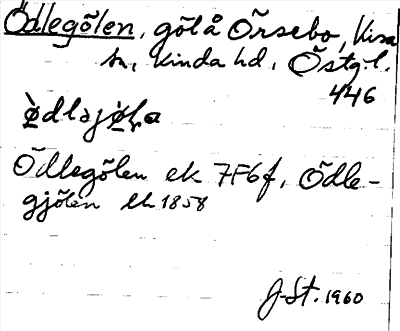 Ödlegölen, göl å Örsebo, Kisa
sn, Kinda hd, Östg-l.
446
ø̀dlajø̀ḷa
Ödlegölen ek 7F6f, Ödle-
gjölen lh 1858
J-St. 1960